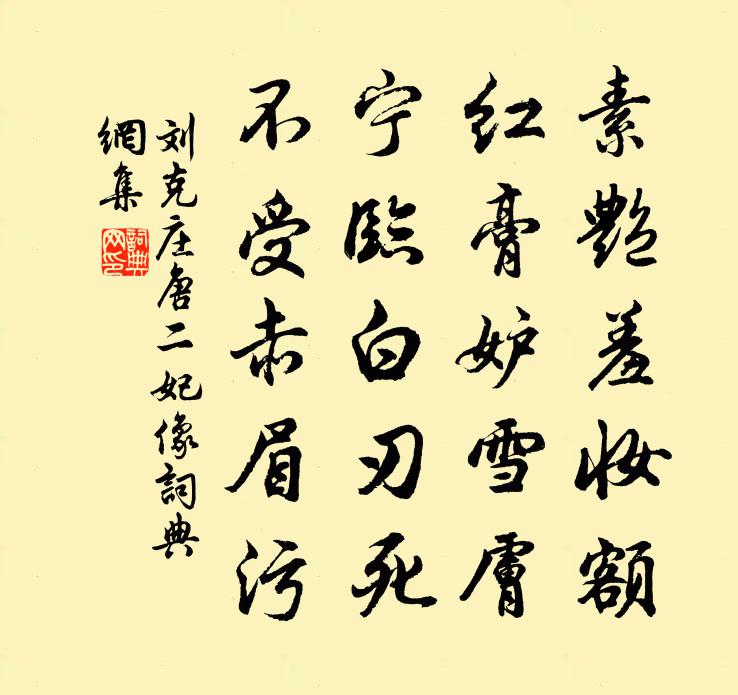 素艷羞妝额
红膏妒雪膚
宁臨白刃死
不受赤眉污
刘克庄唐二妃像詞典
網集
詞典
网印